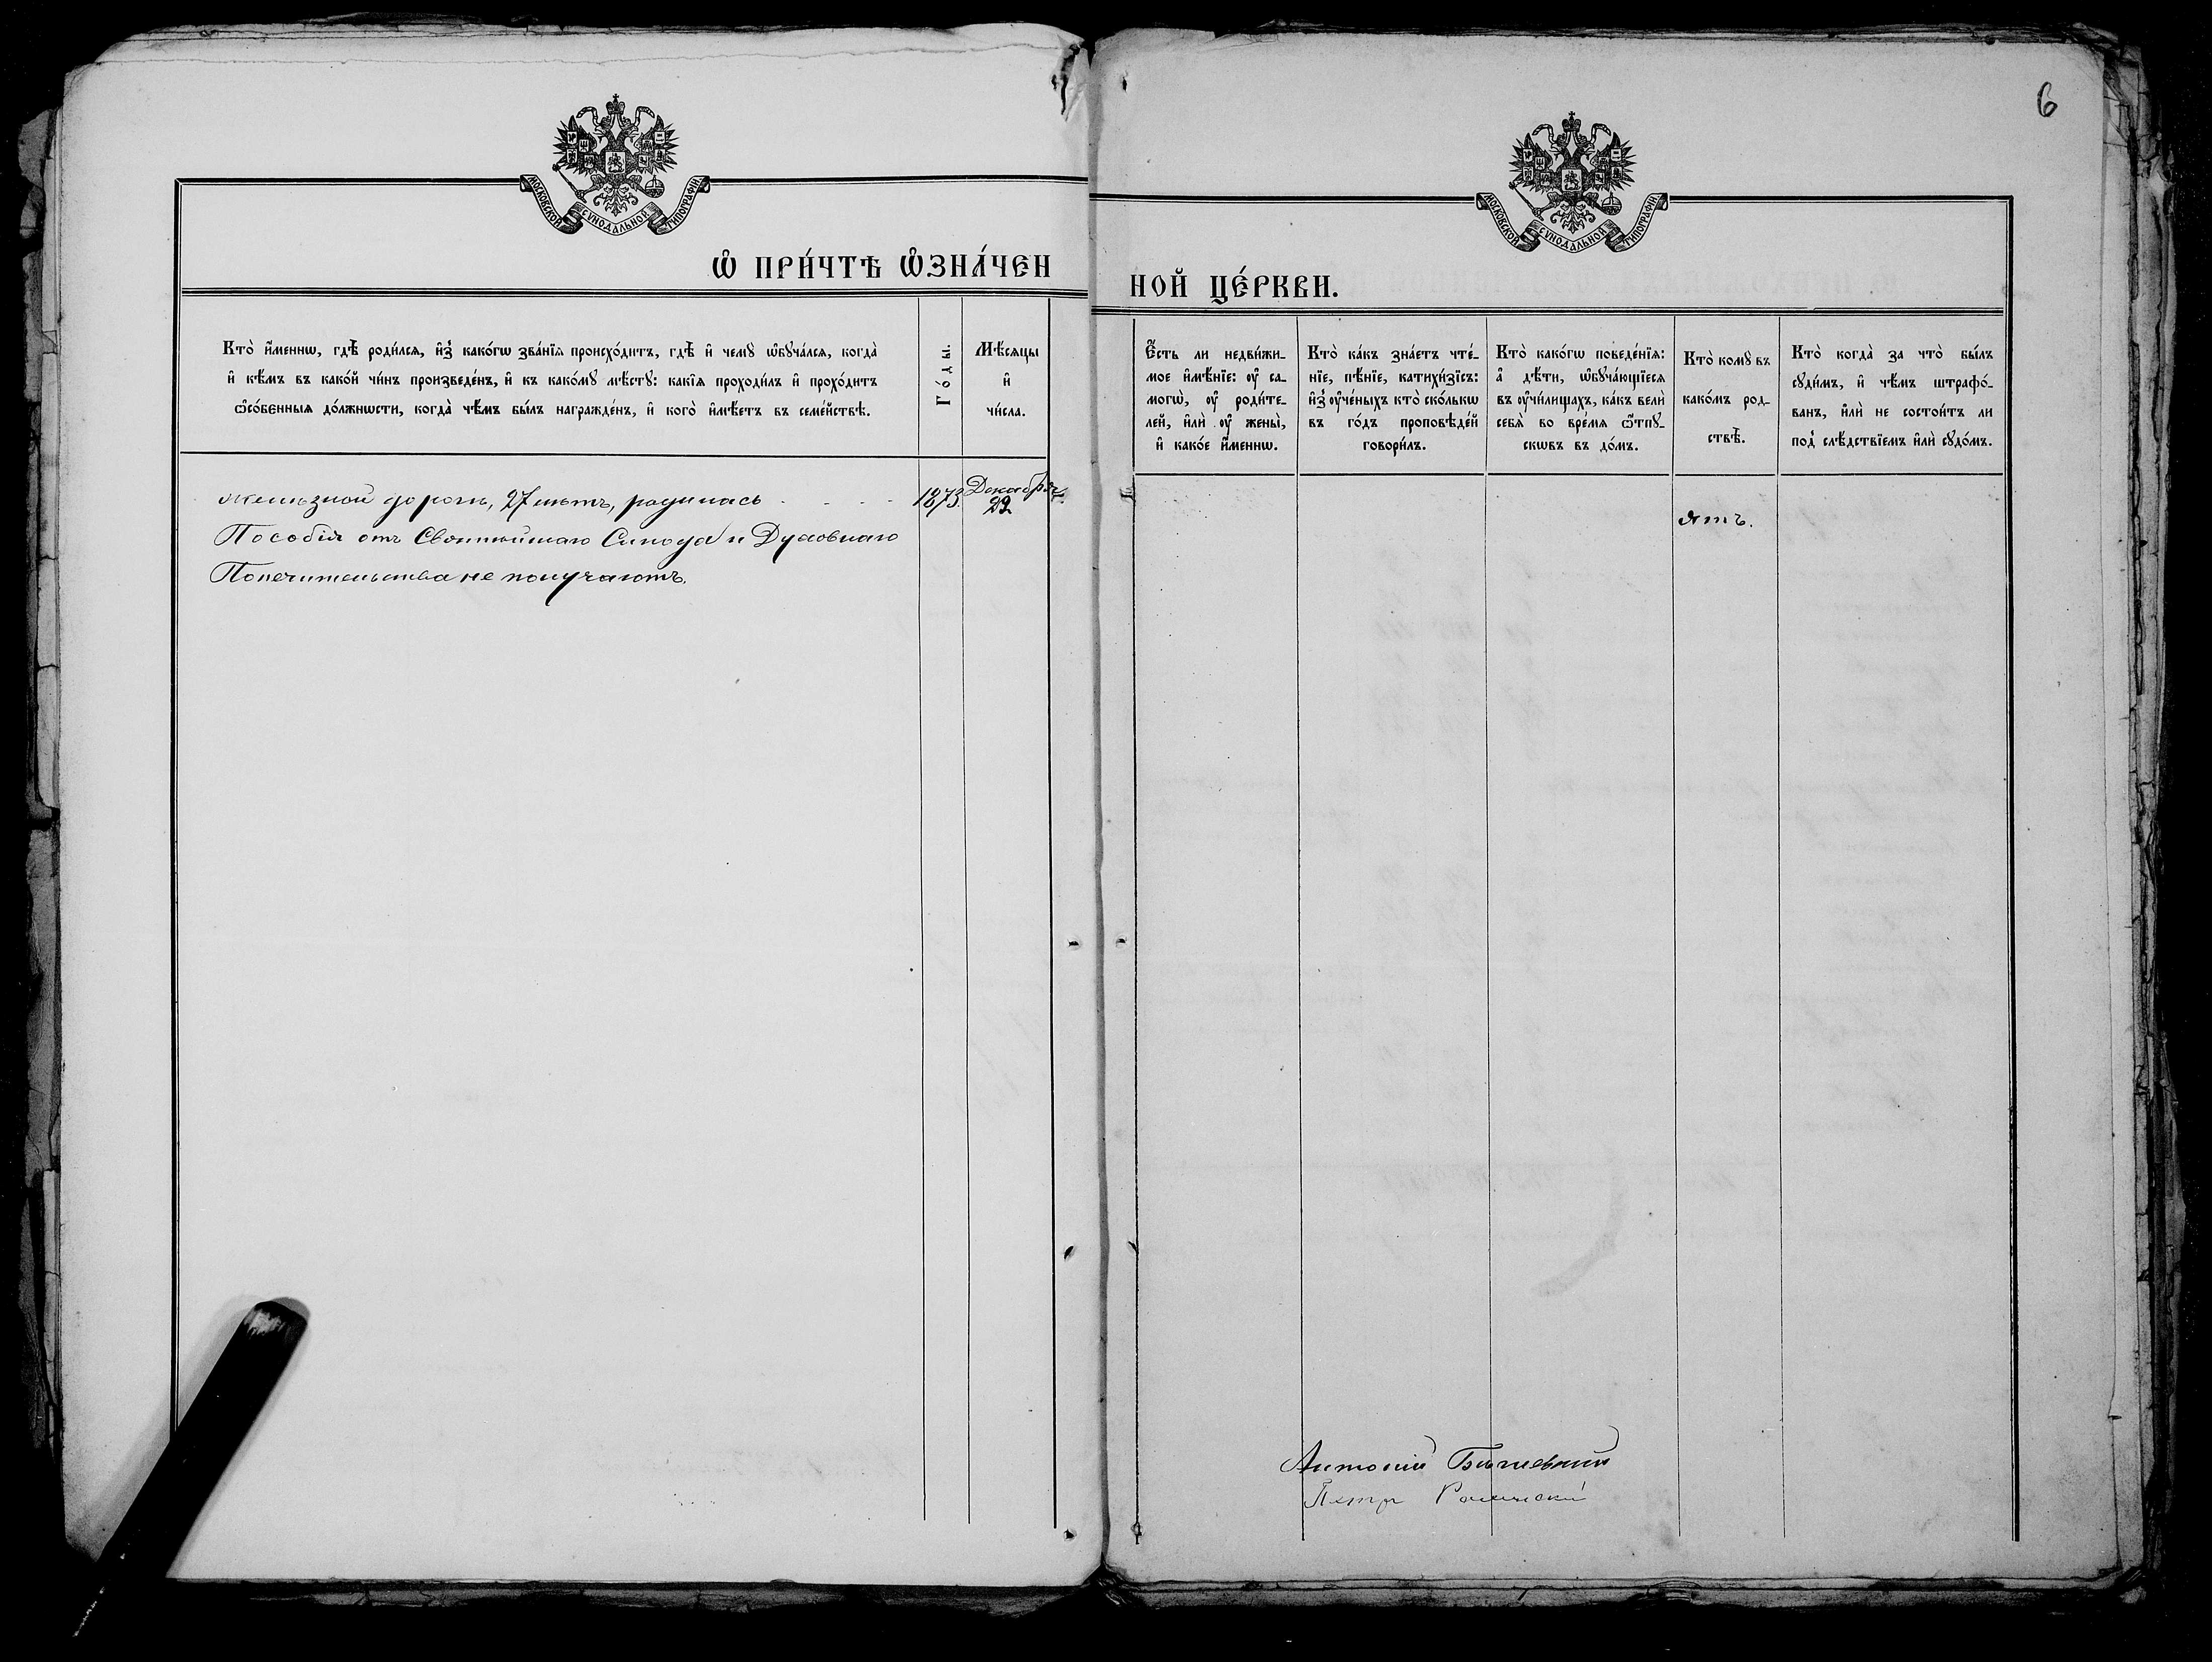 МОСКОВСКОЙ СѴНОДАЛЬНОЙ ТИПОГРАФІИ
Ѡ҆ ПРИ́ЧТѢ Ѡ҆ЗНА́ЧЕН
Кто̀ и҆́меннѡ, гдѣ̀ роди́лсѧ, и҆з̾ како́гѡ зва́нїѧ происхо́дитъ, гдѣ̀ и҆ чемꙋ̀ ѡ҆бꙋча́лсѧ, когда̀
и҆ кѣ́мъ въ како́й чи́нъ произведе́нъ, и҆ къ како́мꙋ мѣ́стꙋ: какі́ѧ проходи́лъ и҆ прохо́дитъ
ѻ҆со́бенныѧ до́лжнѡсти, когда̀ чѣ́мъ бы́лъ награжде́нъ, и҆ кого̀ и҆мѣ́етъ въ семе́йствѣ.
Го́ды.
Мѣ́сѧцы
и҆
чи́сла.
желѣзной дороги, 27 лѣтъ, родилась - - - - 1873. Декабря
22
Пособія отъ Святѣйшаго Синода и Духовнаго
Попечительства не получаютъ.
6
МОСКОВСКОЙ СѴНОДАЛЬНОЙ ТИПОГРАФІИ
НОЙ ЦЕ́РКВИ.
Є҆́сть ли недви́жи-
мое и҆мѣ́нїе: ᲂу҆ са-
могѡ̀, ᲂу҆ роди́те-
лей, и҆лѝ ᲂу҆ жены̀,
и҆ како́е и҆́меннѡ.
Кто̀ ка́къ зна́етъ чте́-
нїе, пѣ́нїе, катихи́зїсъ:
и҆з̾ ᲂу҆че́ныхъ кто̀ ско́лькѡ
въ го́дъ проповѣде́й
говори́лъ.
Кто̀ како́гѡ поведе́нїѧ:
а҆ дѣ́ти, ѡ҆бꙋча́ющїесѧ
въ ᲂу҆чи́лищахъ, ка́къ велѝ
себѧ̀ во вре́мѧ ѿпꙋ-
скѡвъ въ до́мъ.
Кто̀ комꙋ̀ въ
како́мъ род-
ствѣ̀.
Кто̀ когда̀ за что̀ бы́лъ
сꙋди́мъ, и҆ чѣ́мъ штрафо́-
ванъ, и҆лѝ не состои́тъ ли
под̾ слѣ́дствїемъ и҆лѝ сꙋдо́мъ.
ятъ.
Антоній
Петръ